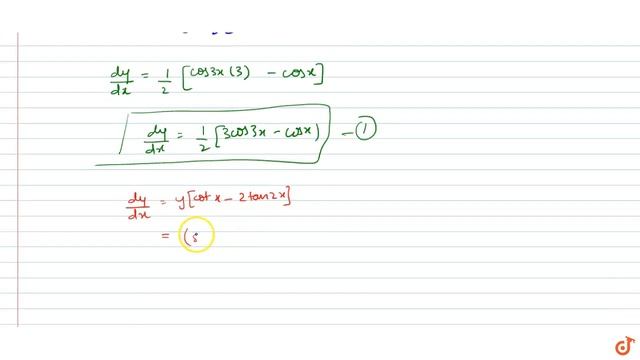 dy/dx = 1/2 [cos3x(3) - cosx]
dy/dx = 1/2 [3cos3x - cosx] - ①
dy/dx = y[cotx - 2tan2x]
= (s